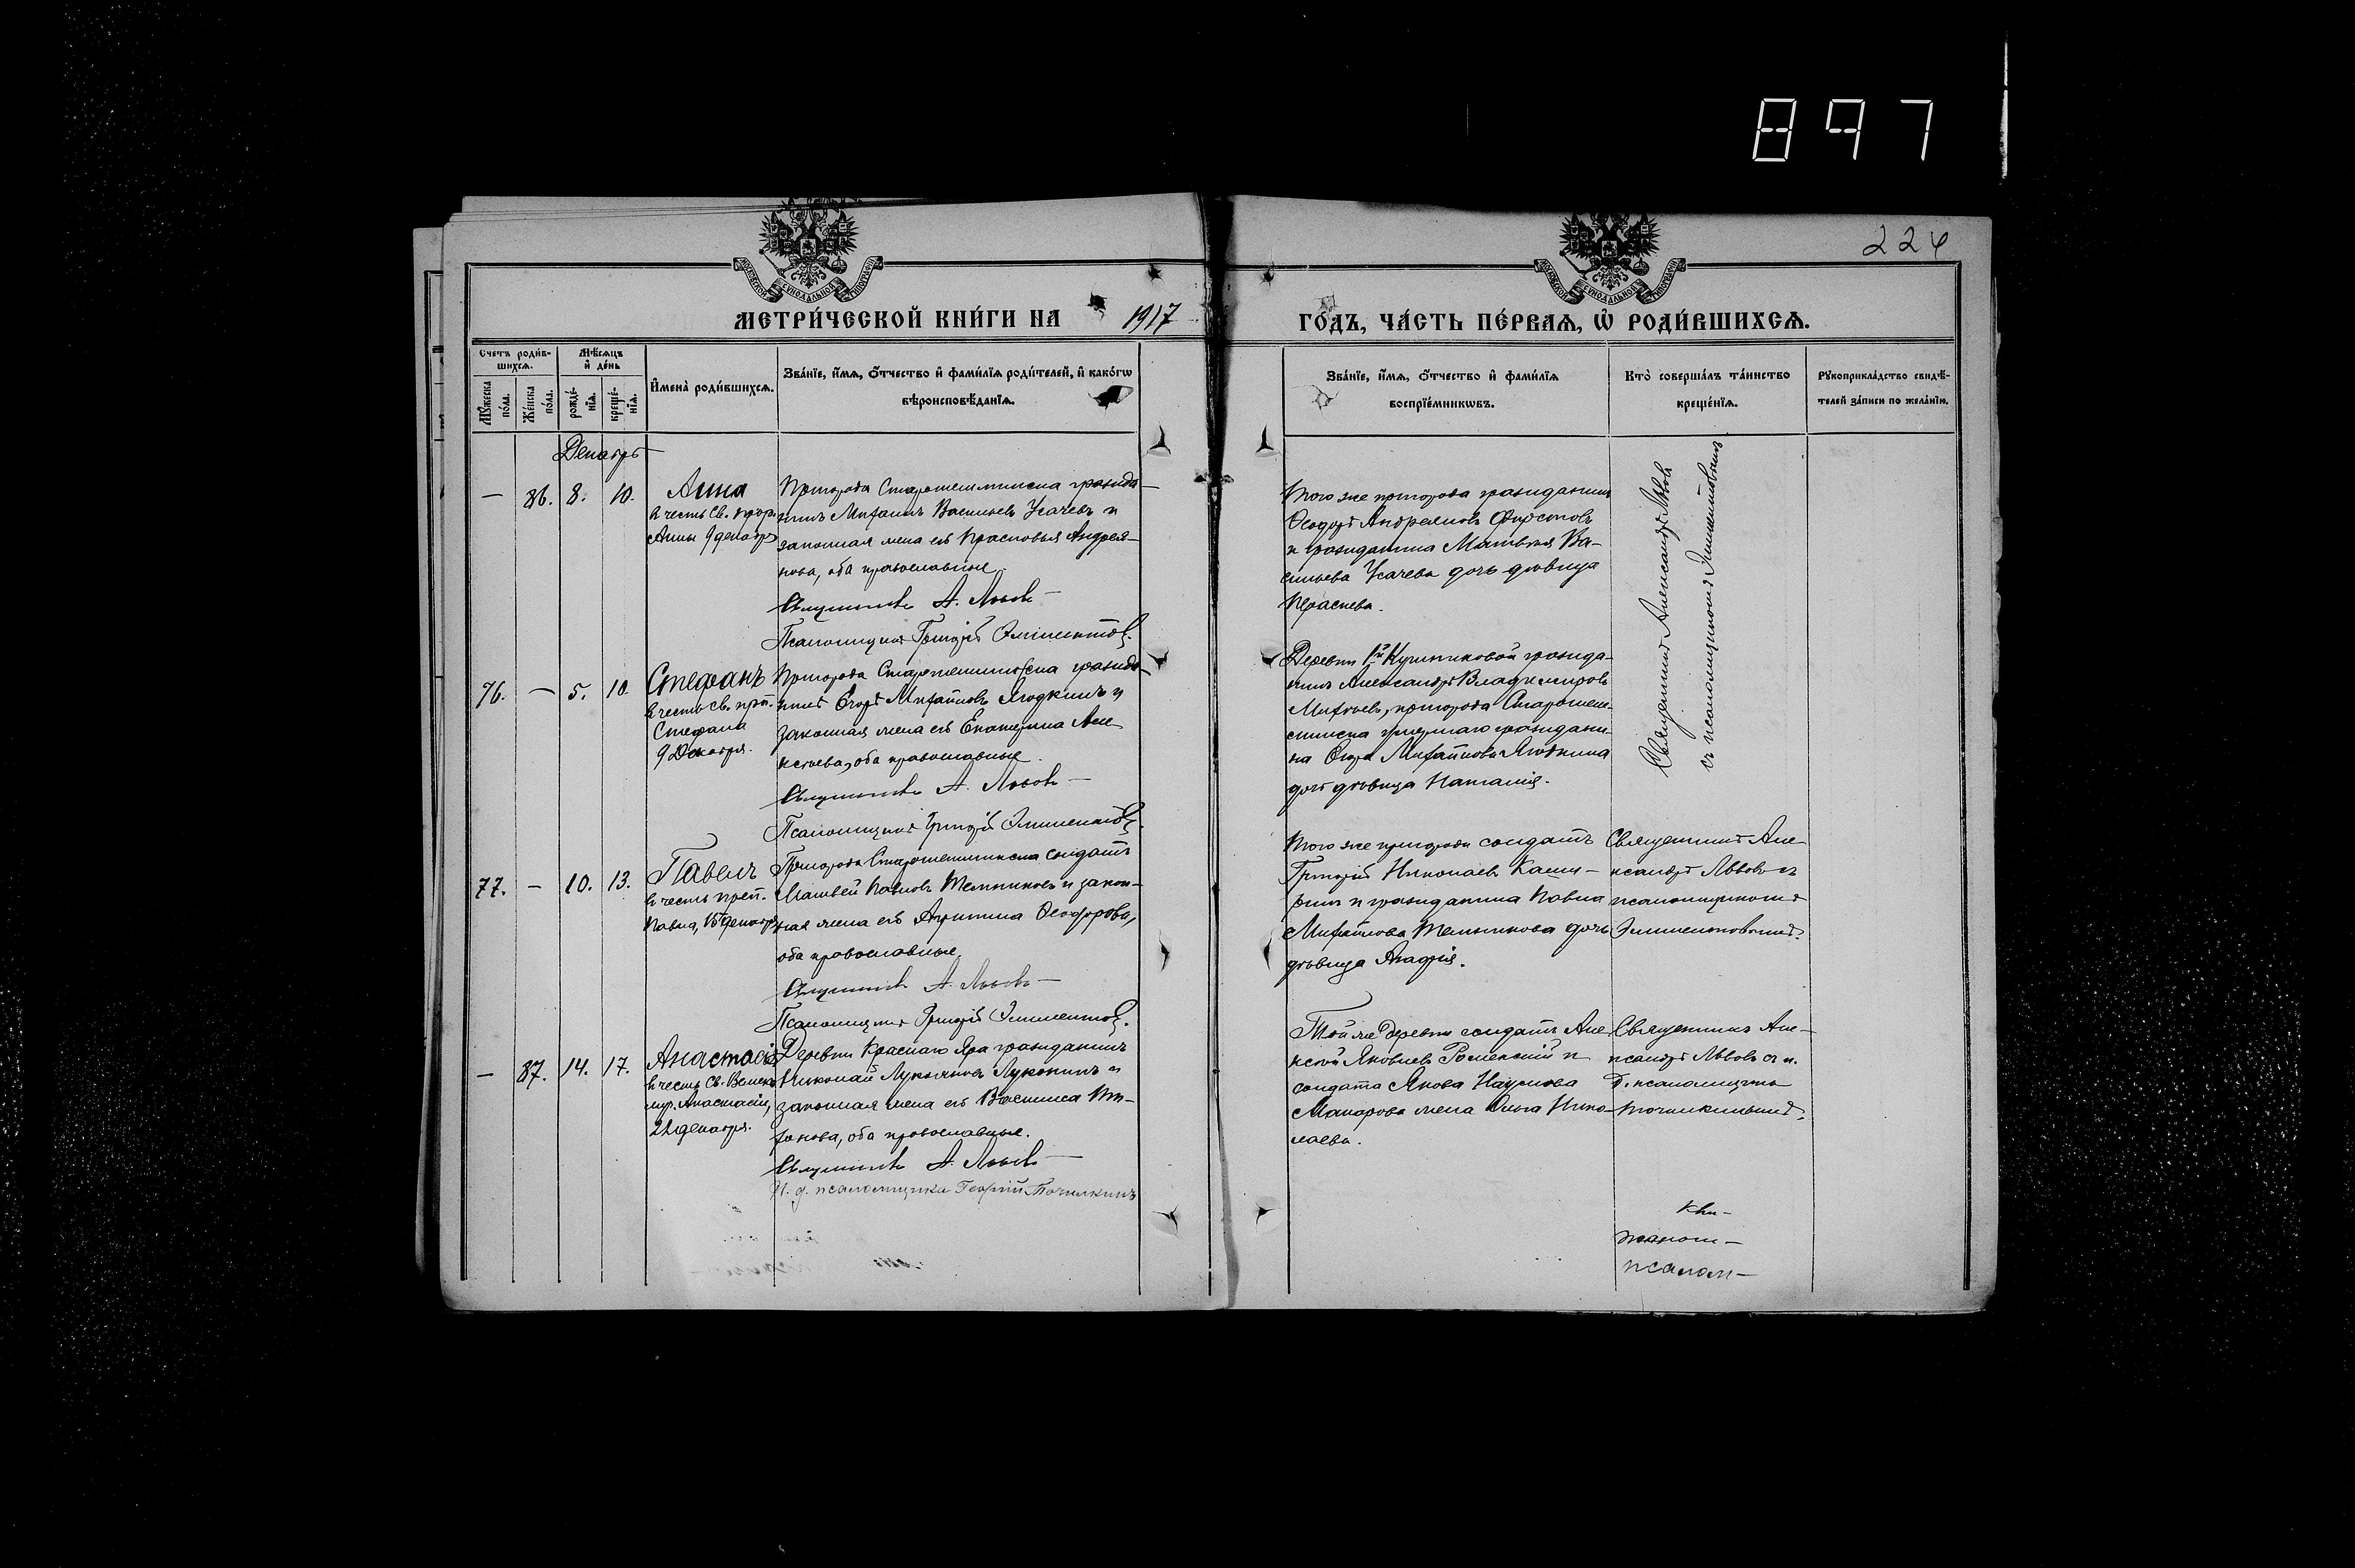 897
224
МЕТРИ́ЧЕСКОЙ КНИ́ГИ НА 1917 ГО́ДЪ, ЧА́СТЬ ПЕ́РВАѦ, Ѡ҆ РОДИ́ВШИХСѦ.
Счетъ роди́в-
шихсѧ.
Мѣ́сѧцъ
и҆ де́нь
Мꙋ́жеска по́ла.
Же́нска по́ла.
рожде́-
нїѧ.
креще́-
нїѧ.
И҆мена̀ роди́вшихсѧ.
Зва́нїе, и҆́мѧ, ѻ҆́тчество и҆ фами́лїѧ роди́телей, и҆ како́гѡ
вѣроисповѣ́данїѧ.
Зва́нїе, и҆́мѧ, ѻ҆́тчество и҆ фами́лїѧ
воспрїе́мникѡвъ.
Кто̀ соверша́лъ та́инство
креще́нїѧ.
Рꙋкоприкла́дство свидѣ́-
телей за́писи по жела́нїю.
Декабрь
— 86. 8. 10.
Анна
въ честь Св. прор.
Анны 9 декабря
Пригорода Старошешминска гражда-
нинъ Михаилъ Васильевъ Усачевъ и
законная жена его Прасковья Андрея-
нова, оба православные.
Священникъ А. Львовъ
Псаломщикъ Григорій
Того же пригорода гражданинъ
Ѳеодоръ Андреяновъ Фирсовъ
и гражданина Василья Ва-
сильева Усачева дочь дѣвица
Священникъ Александръ Львовъ
съ псаломщикомъ
76. — 5. 10.
Стефанъ
въ честь св. прп.
Стефана
9 Декабря.
Пригорода Старошешминска гражда-
нинъ Егоръ Михайловъ Ягодкинъ и
законная жена его Екатерина Але-
ксѣева, оба православные.
Священникъ А. Львовъ
Псаломщикъ Григорій
Деревни 1й гражда-
нинъ Александръ Владимировъ
Михѣевъ, пригорода Старошеш-
минска умершаго граждани-
на Михайлова Ягодкина
дочь дѣвица Наталія.
77. — 10. 13.
Павелъ
въ честь преп.
Павла, 15 декабря
Пригорода Старошешминска солдатъ
Матвей Павловъ Мельниковъ и закон-
ная жена его Акулина Ѳеодорова,
оба православные.
Священникъ А. Львовъ
Псаломщикъ Григорій
Того же пригорода солдатъ
Григорій Николаевъ Каши-
ринъ и гражданина Павла
Михайлова Мельникова дочь
дѣвица Агафія.
Священникъ Але-
ксандръ Львовъ съ
псаломщикомъ
— 87. 14. 17.
Анастасія
въ честь Св. Велик.
муч. Анастасіи,
22 декабря.
Деревни Краснаго Яра гражданинъ
Николай Лукьяновъ Луконинъ и
законная жена его Василиса
оба православные.
Священникъ А. Львовъ
И. д. псаломщика Георгій Точилкинъ
Той же деревни солдатъ Але-
ксѣй Яковлевъ Роменскій и
солдата Якова Наумова
Макарова жена Ольга Нико-
лаева.
Священникъ Але-
ксандръ Львовъ съ и.
д. псаломщика
Точилкинымъ.
псалом-